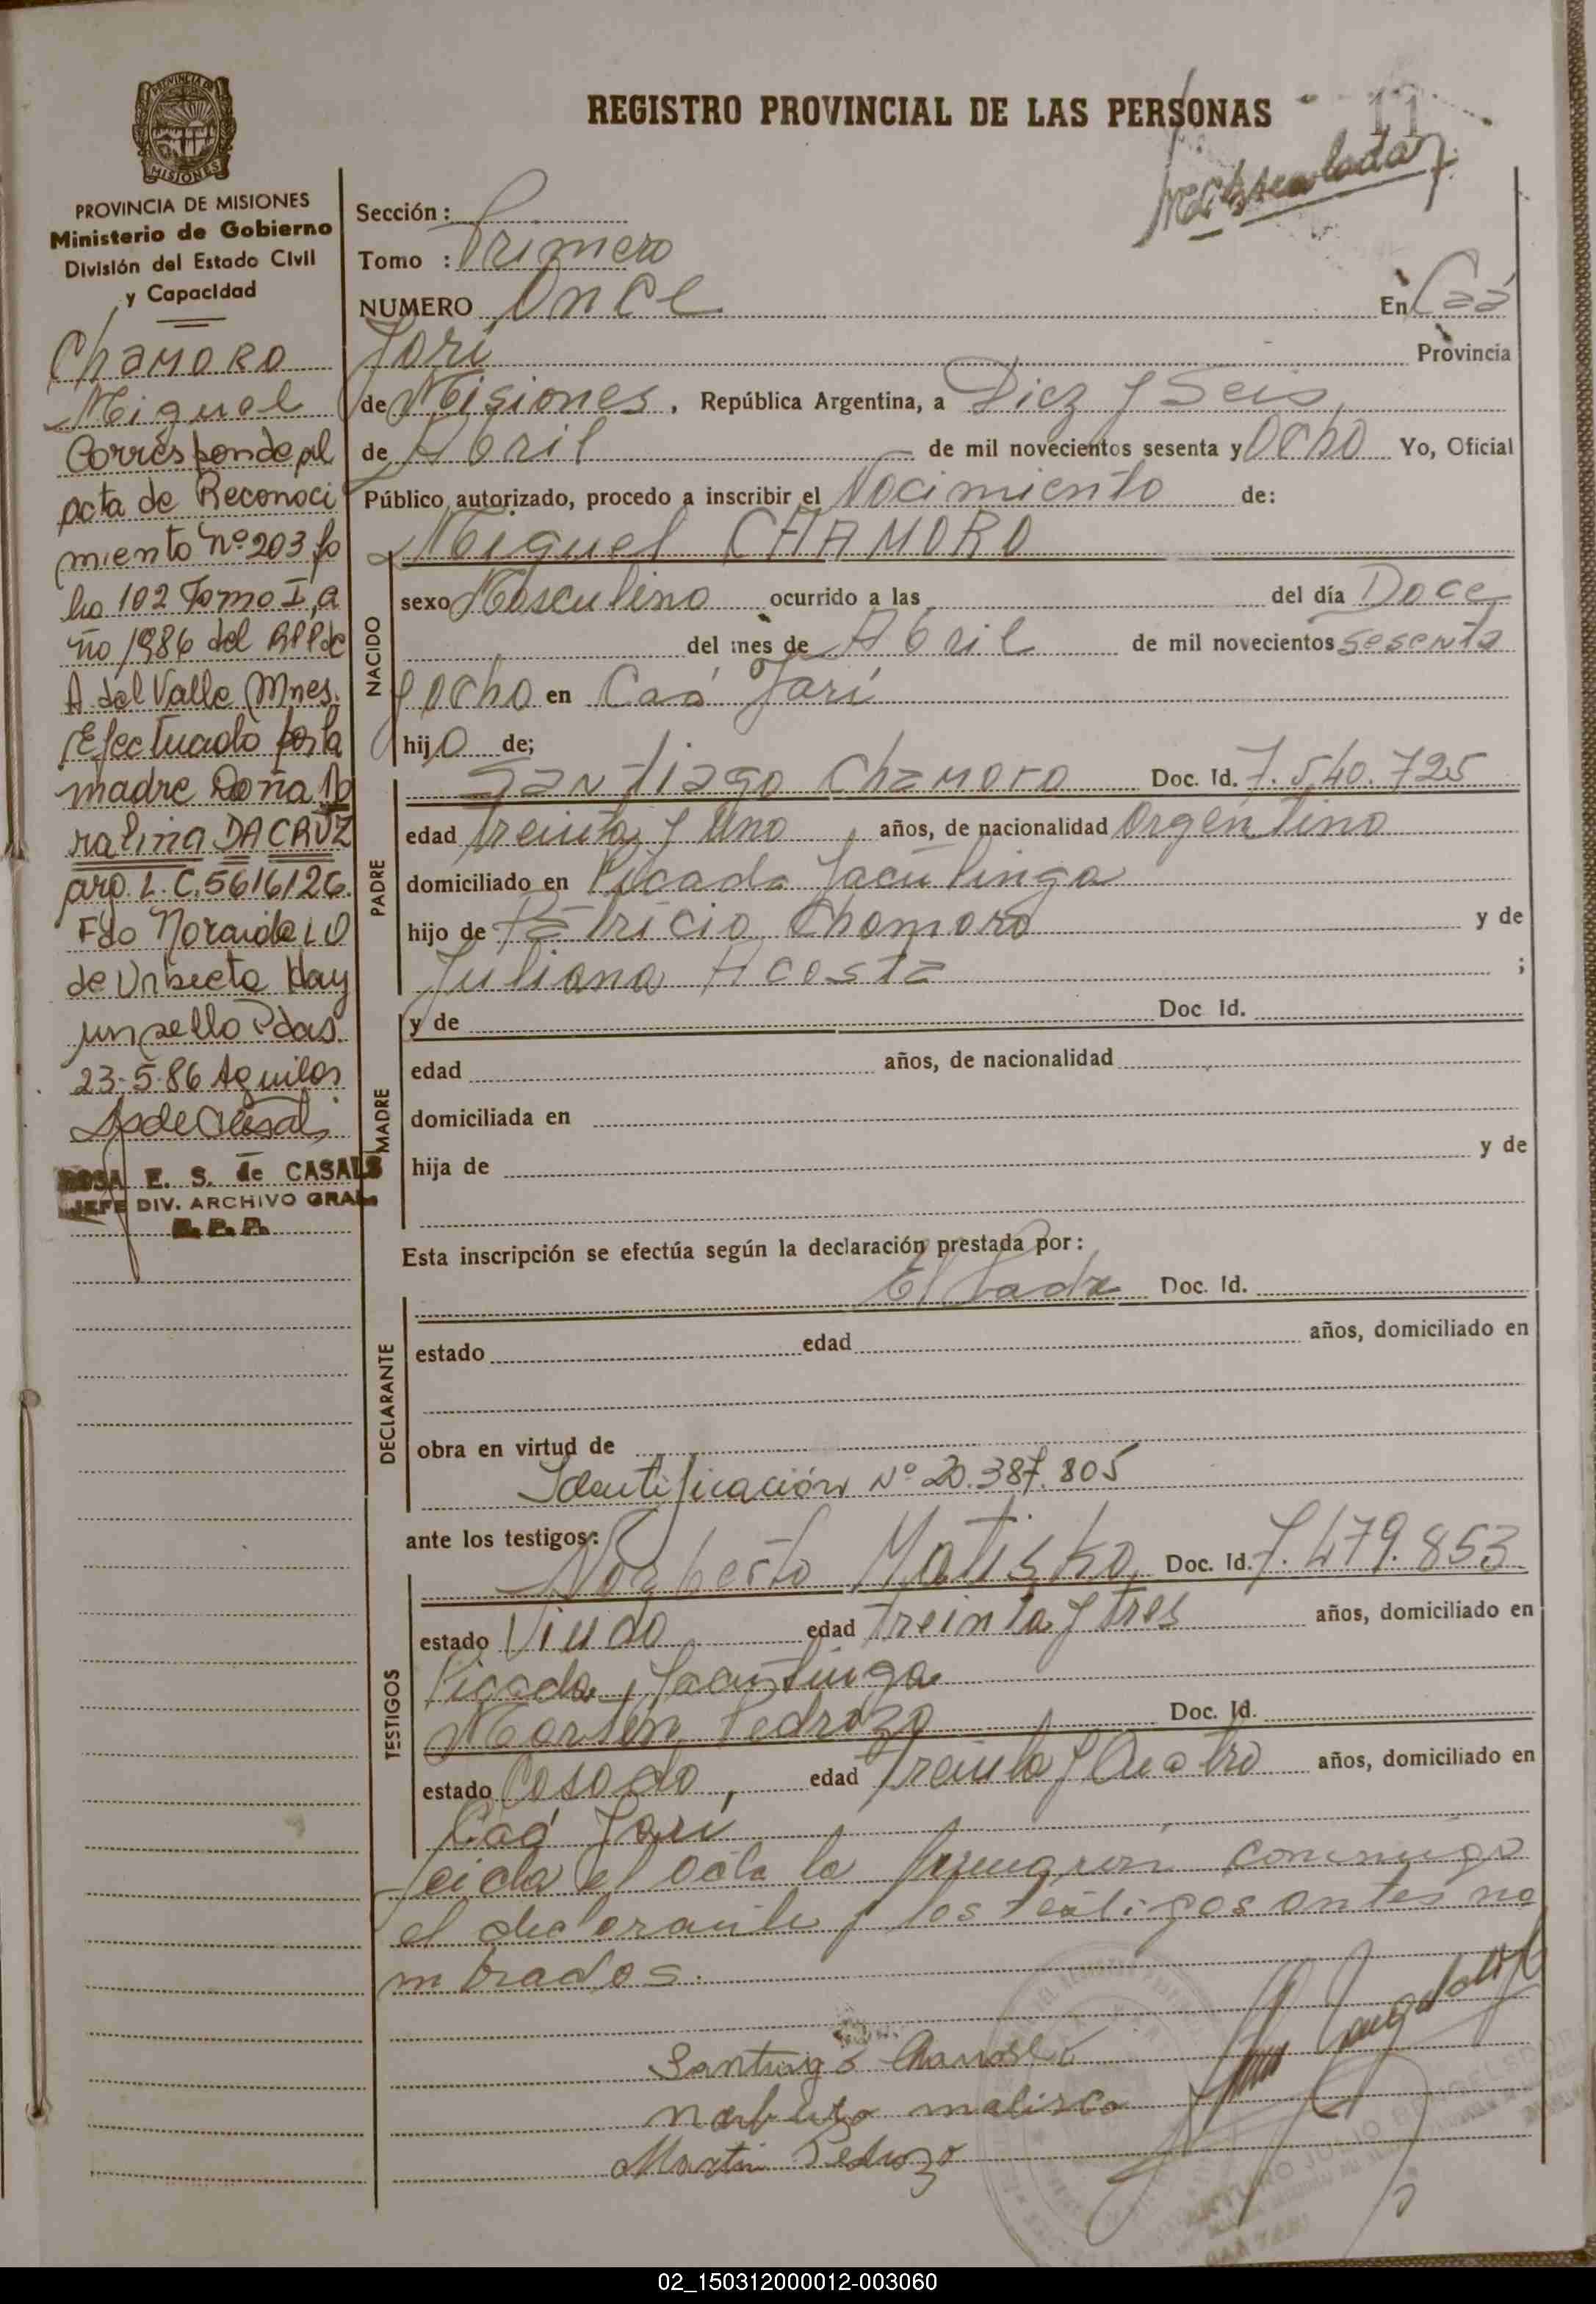 PROVINCIA DE
MISIONES
REGISTRO PROVINCIAL DE LAS PERSONAS
11
PROVINCIA DE MISIONES
Ministerio de Gobierno
División del Estado Civil
y Capacidad
Chamoro
Miguel
Corresponde al
acta de Reconoci
miento nº 203 fo
lio 102 Tomo I, a
ño 1986 del RPP de
A del Valle Mnes.
Efectuado por la
madre Doña Mo
ralina DA CRUZ
arg. L. C. 5616126.
Fdo Noraide L O
de Urbieta Hay
un sello Pdas.
23-5-86 Aguilar
ROSA E. S. de CASALS
JEFE DIV. ARCHIVO GRAL.
R. P. P.
Sección :
Tomo : Primero
NUMERO Once En Caá
Yarí Provincia
de Misiones, República Argentina, a Diez y Seis
de Abril de mil novecientos sesenta y Ocho Yo, Oficial
Público autorizado, procedo a inscribir el Nacimiento de:
Miguel CHAMORO
NACIDO
sexo Masculino ocurrido a las del día Doce
del mes de Abril de mil novecientos sesenta
y ocho en Caá Yarí
hijo de;
PADRE
Santiago Chamoro Doc. Id. 7.540.725
edad treinta y Uno, años, de nacionalidad Argentino
domiciliado en Picada Yacutinga
hijo de Patricio Chamoro y de
Juliana Acosta ;
MADRE
y de Doc Id.
edad años, de nacionalidad
domiciliada en
hija de y de
Esta inscripción se efectúa según la declaración prestada por :
DECLARANTE
El Padre Doc. Id.
estado edad años, domiciliado en
obra en virtud de
Identificación Nº 20.387.805
ante los testigos:
TESTIGOS
Norberto Matisko, Doc. Id. 7.479.853
estado Viudo edad treinta y tres años, domiciliado en
Picada Yacutinga
Martin Pedrozo Doc. Id.
estado Casado, edad Treinta y Cuatro años, domiciliado en
Caá Yarí
Leida el acta la firmaron conmigo
el declarante y los testigos antes no
mbrados.
Santiago Chamoro
norberto matisco
Martin Pedrozo
02_150312000012-003060